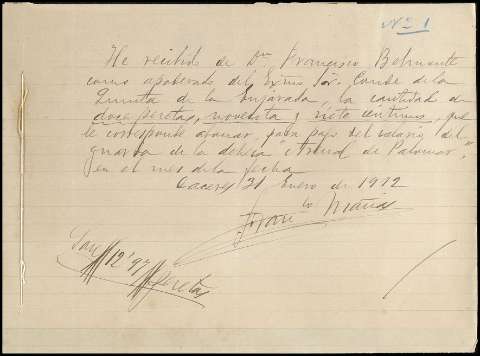 Nº 1
He recibido de Dn Francisco Belmonte
como apoderado del Exmo Sor. Conde de la
Quinta de la Enjarada, la cantidad de
doce pesetas, noventa y siete céntimos, que
le corresponde abonar, para pago del salario del
guarda de la dehesa "Arenal de Palomar",
en el mes de la fecha
Caceres 31 Enero de 1912
Son 12'97 pesetas